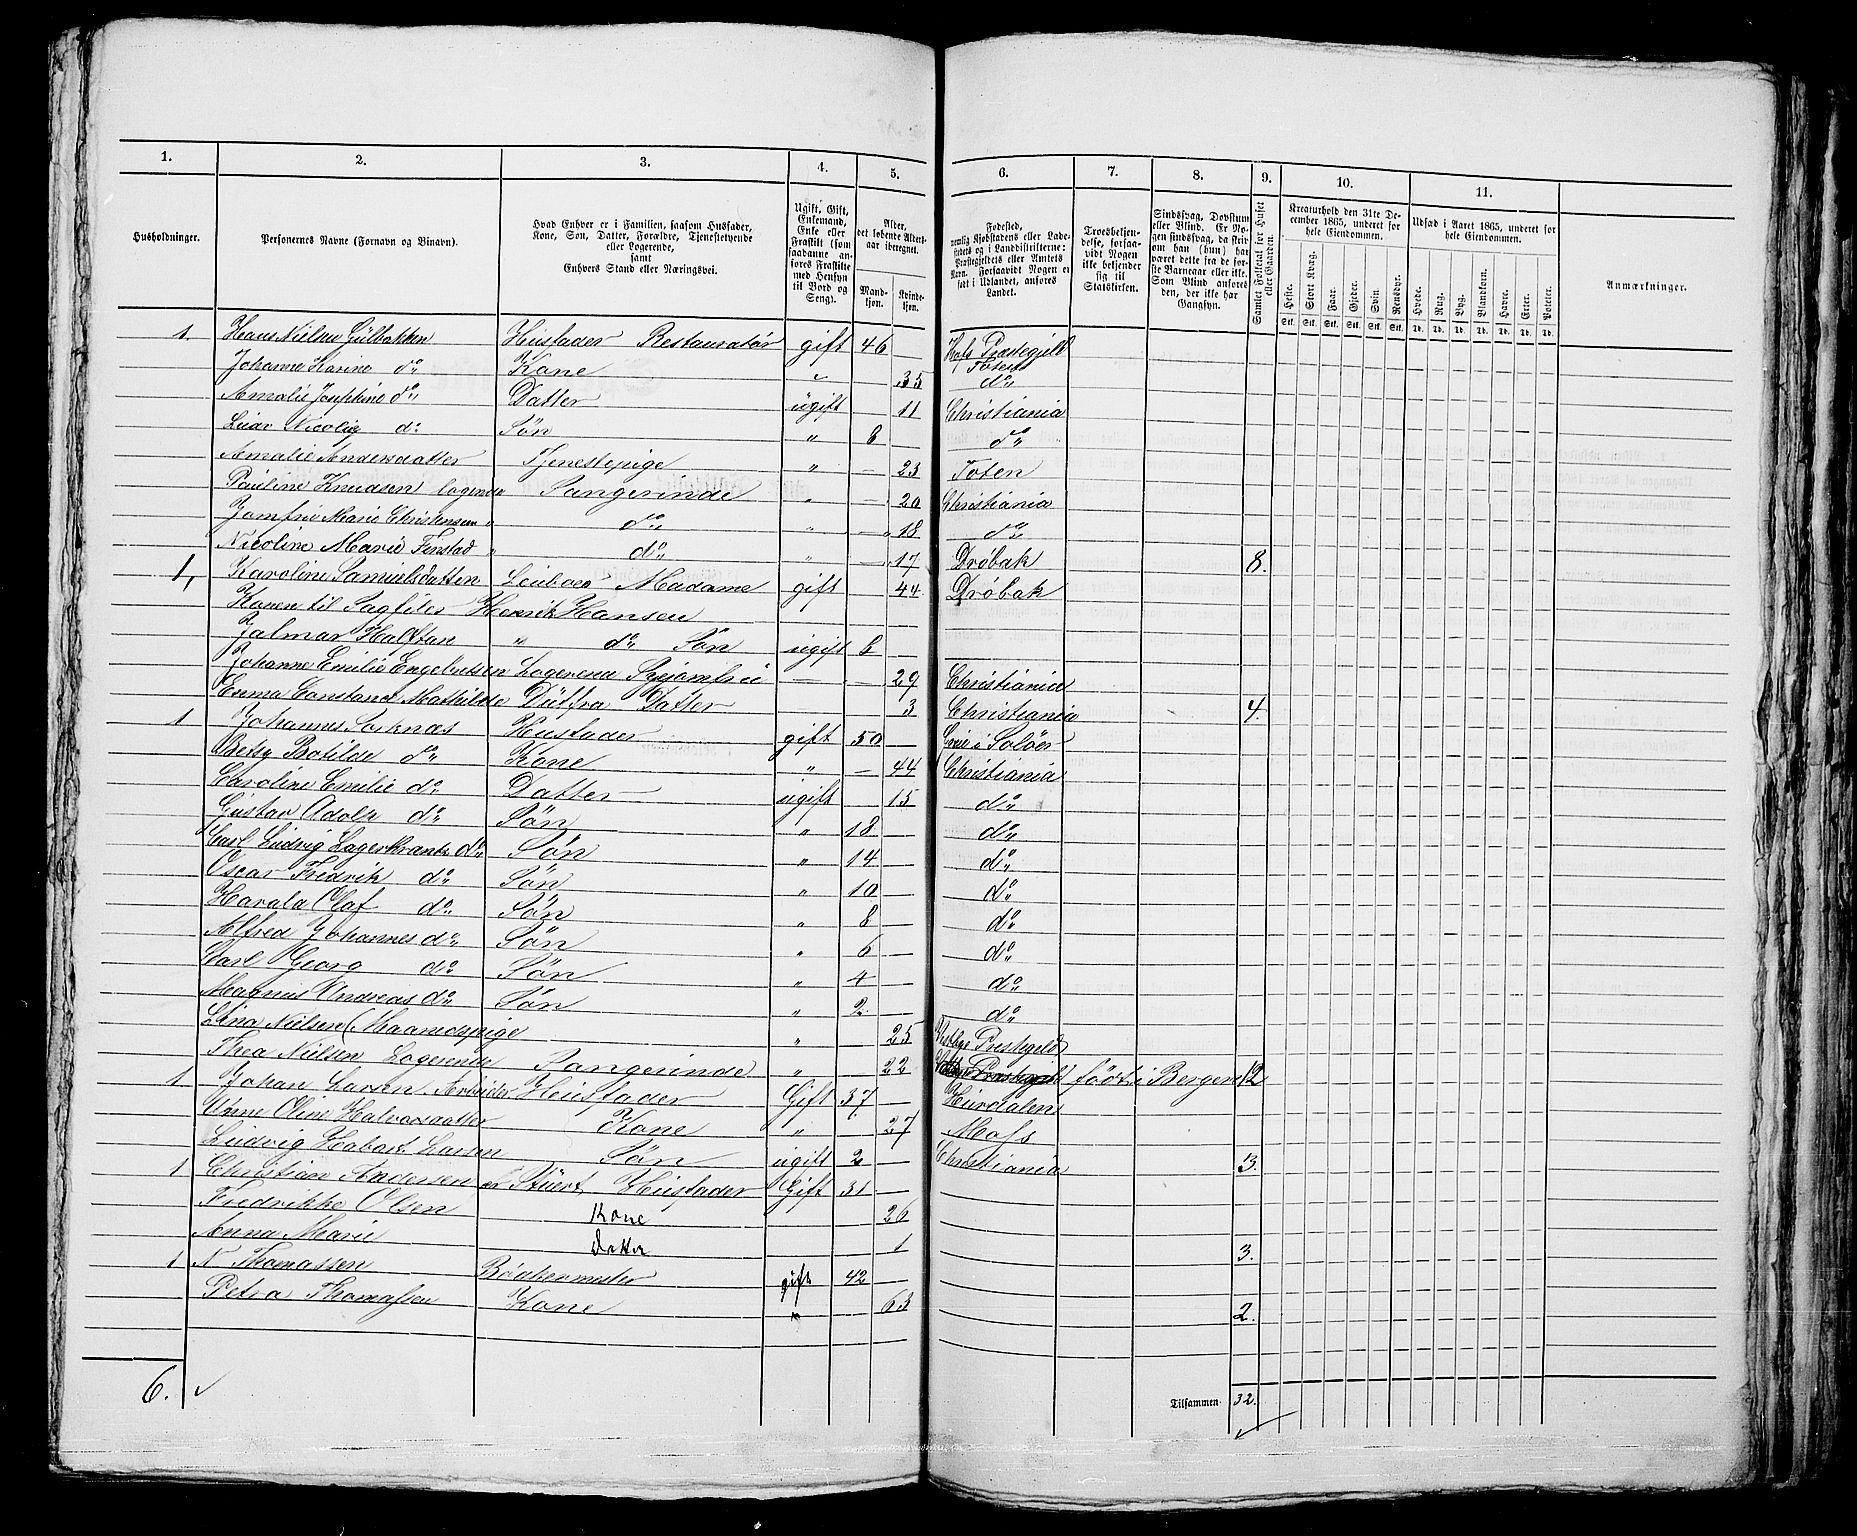 1. 2. 3. 4. 5. 6. 7. 8. 9. 10. 11.
Husholdninger.
Personernes Navne (Fornavn og Binavn).
Hvad Enhver er i Familien, saasom Husfader, Kone, Søn, Datter, Forældre, Tjenestetyende eller Logerende, samt Enhvers Stand eller Næringsvei.
Ugift, Gift, Enkemand, Enke eller Fraskilt (som saadanne anføres Fraskilte med Hensyn til Bord og Seng).
Alder, det løbende Aldersaar iberegnet.
Mandkjøn. Kvindekjøn.
Fødested, nemlig Kjøbstadens eller Ladestedets og i Landdistrikterne: Præstegjeldets eller Amtets Navn. Forsaavidt Nogen er født i Udlandet, anføres Landet.
Troesbekjendelse, forsaavidt Nogen ikke bekjender sig til Statskirken.
Sindssvag, Døvstum eller Blind. Er Nogen sindssvag, da skriv om han (hun) har været dette fra de første Barneaar eller ikke. Som Blind anføres den, der ikke har Gangsyn.
Samlet Folketal for Huset eller Gaarden.
Kreaturhold den 31te December 1865, underet for hele Eiendommen.
Heste. Stort Kvæg. Faar. Gjeder. Svin. Rensdyr.
Stk. Stk. Stk. Stk. Stk. Stk.
Udsæd i Aaret 1865, underet for hele Eiendommen.
Hvede. Rug. Byg. Blandkorn. Havre. Erter. Poteter.
Td. Td. Td. Td. Td. Td. Td.
Anmærkninger.
1. Hans Nielsen Gulbakken Husfader Restauratør gift 46 Hofs Præstegjeld Toten
Johanne Karine do Kone " 35 do
Amalie Josephine do Datter ugift 11 Christiania
Nicolay do Søn " 8 do
Amalie Andersdatter Tjenestepige " 23 Toten
Pauline Knudsen logerende Sangerinde " 20 Christiania
Jomfru Marie Christensen " do " 18 do
Nicoline Marie Finstad " do " 17 Drøbak 8.
1, Karoline Samuelsdatter Madame gift 44 Drøbak
Konen til Sagfiler Henrik Hansen
Jalmar Halftan " do Søn ugift 6
Johanne Emilie Engebretsen Logerende Syjomfru 29 Christiania
Emma Constance Mathilde Datter 3 Christiania 4.
1 Johannes Sorknæs Husfader gift 50 i Soløer
Betsy Botilde do Kone " 44 Christiania
Caroline Emilie do Datter ugift 15 do
Gustav Adolf do Søn " 18 do
Carl Ludvig Lagerkrantz do Søn " 14 do
Oscar Fredrik do Søn " 10 do
Harald Olaf do Søn " 8 do
Alfred Johannes do Søn " 6 do
Carl Georg do Søn " 4 do
Magnus Andreas do Søn " 2 do
Lina Nielsen " 25 Vestbye Prestegeld
Thea Nielsen Logerende Sangerinde " 22 født i Bergen 12
1 Johan Larsen Arbeider Husfader Gift 37 Hurdalen
Anne Oline Halvorsdatter Kone " 27 Moss
Ludvig Habart Larsen Søn ugift 2 Christiania 3.
1 Christian Andersen Stuert Husfader Gift 31
Fredrikke Olsen Kone 26
Anna Marie Datter 1 3.
1 N Thomassen Bødkermester gift 42
Petra Thomassen Kone " 63 2.
6. Tilsammen 32.